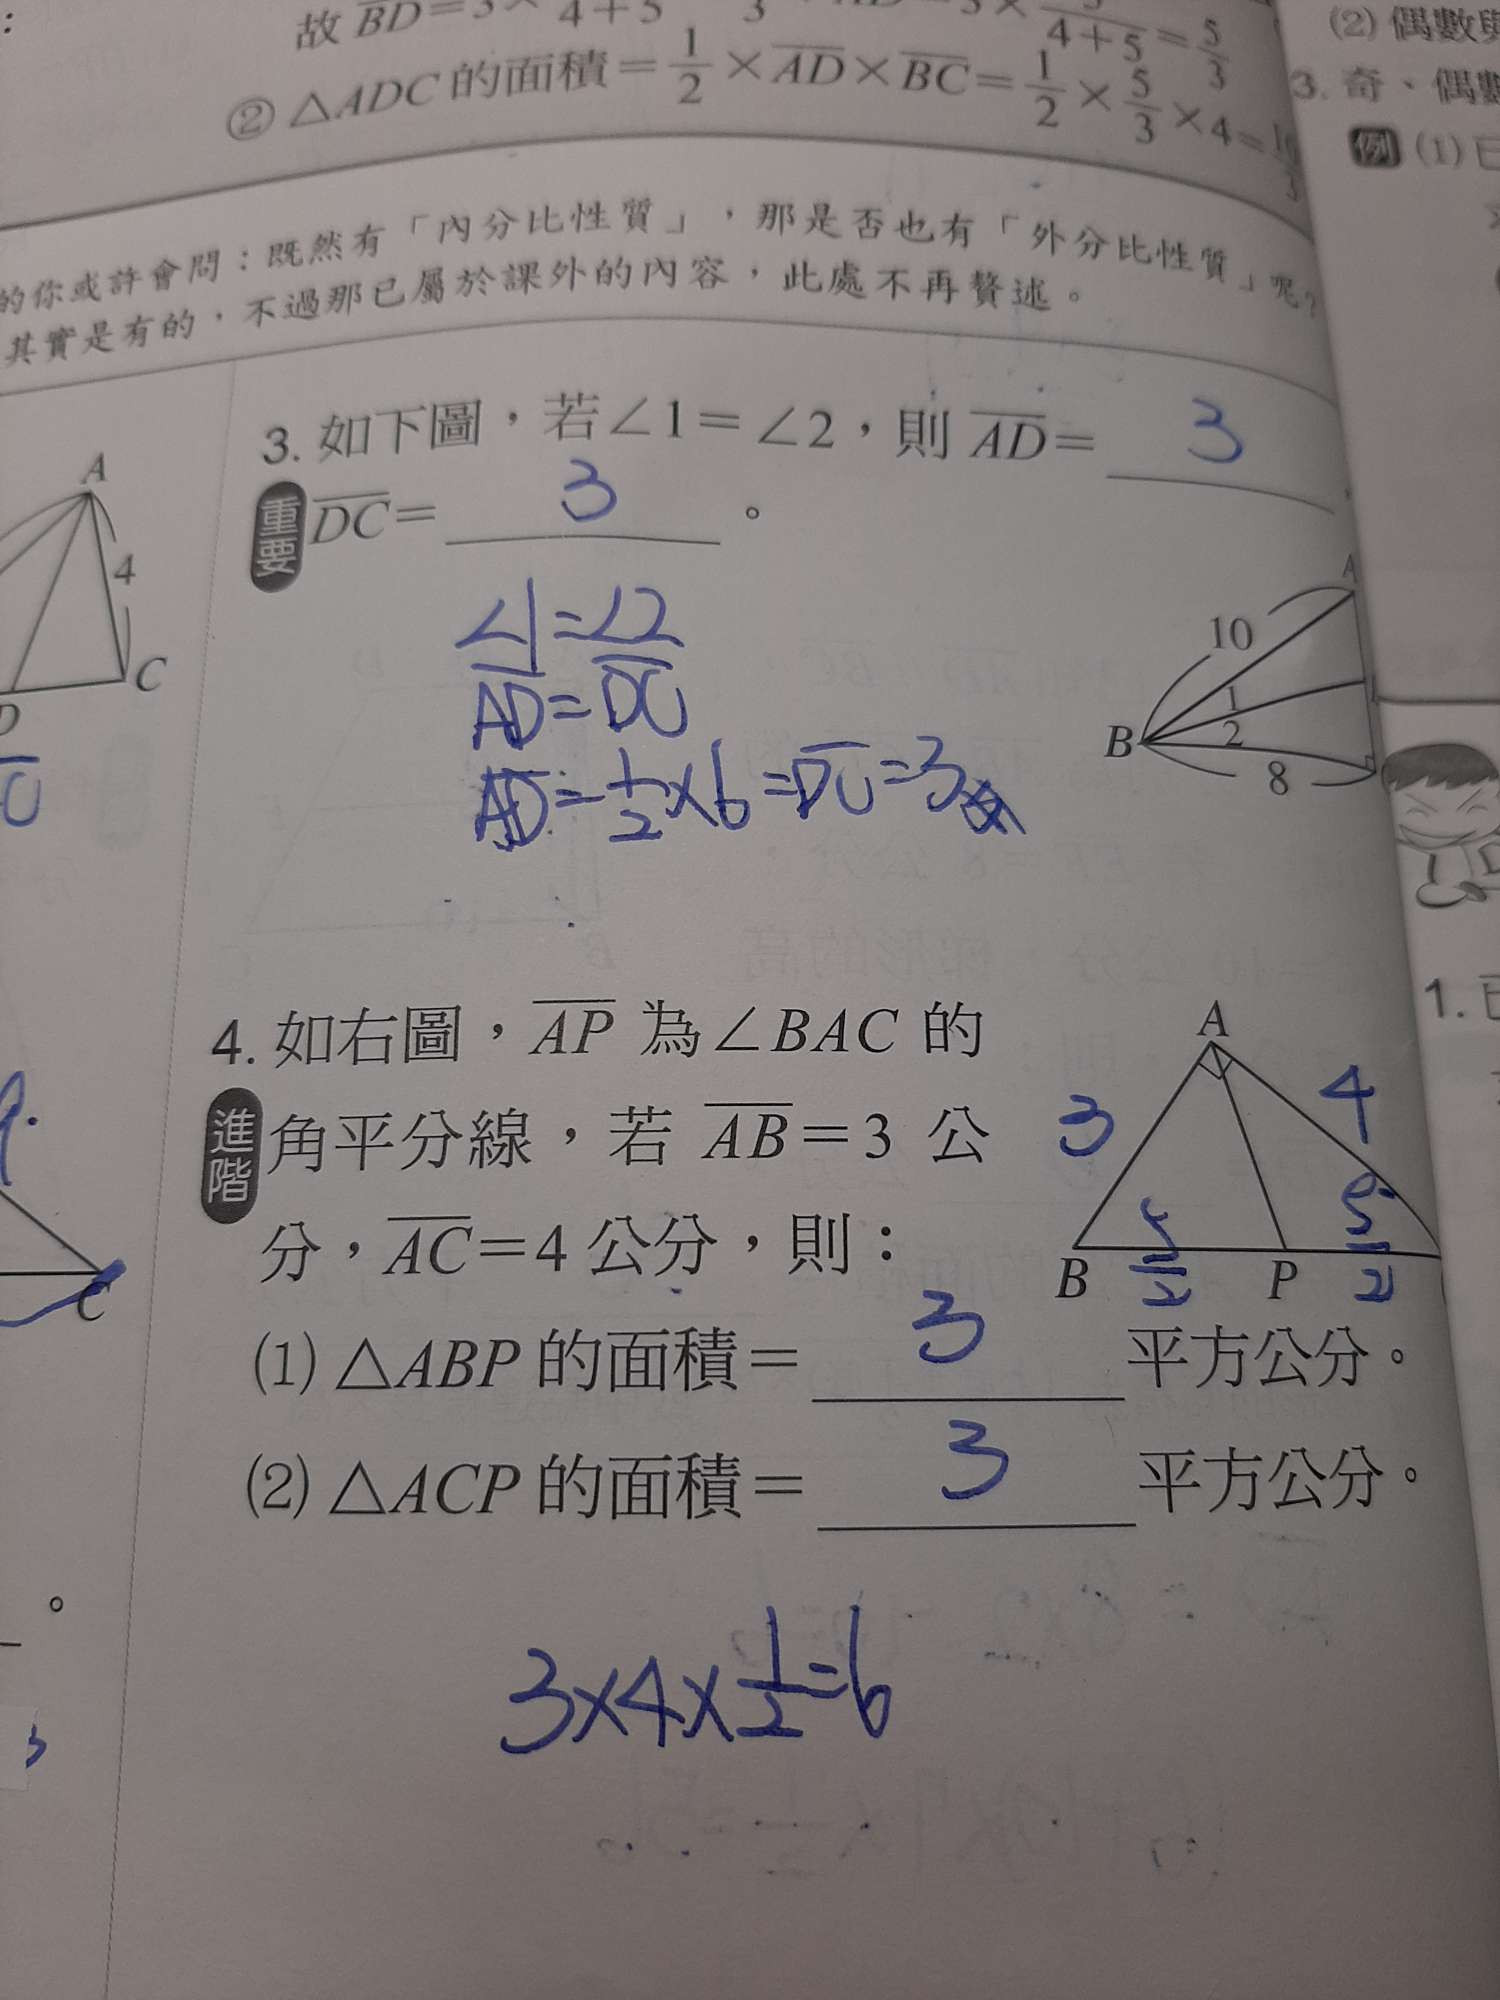 故 BD=3×
4+5
4+5 = 5/3
② △ADC 的面積=1/2×AD×BC=1/2×5/3×4=
的你或許會問：既然有「內分比性質」，那是否也有「外分比性質」呢？
其實是有的，不過那已屬於課外的內容，此處不再贅述。
3. 如下圖，若∠1=∠2，則 AD= 3 ，
重要 DC= 3 。
∠1=∠2
AD=DC
AD=1/2×6=DC=3
A
10
1
2
B
8
4. 如右圖，AP 為∠BAC 的
進階 角平分線，若 AB=3 公
分，AC=4 公分，則：
(1) △ABP 的面積= 3 平方公分。
(2) △ACP 的面積= 3 平方公分。
A
3
4
5/2
5/2
B
P
3×4×1/2=6
A
4
C
D
C
(2) 偶數
3. 奇、偶
例 (1)
1.